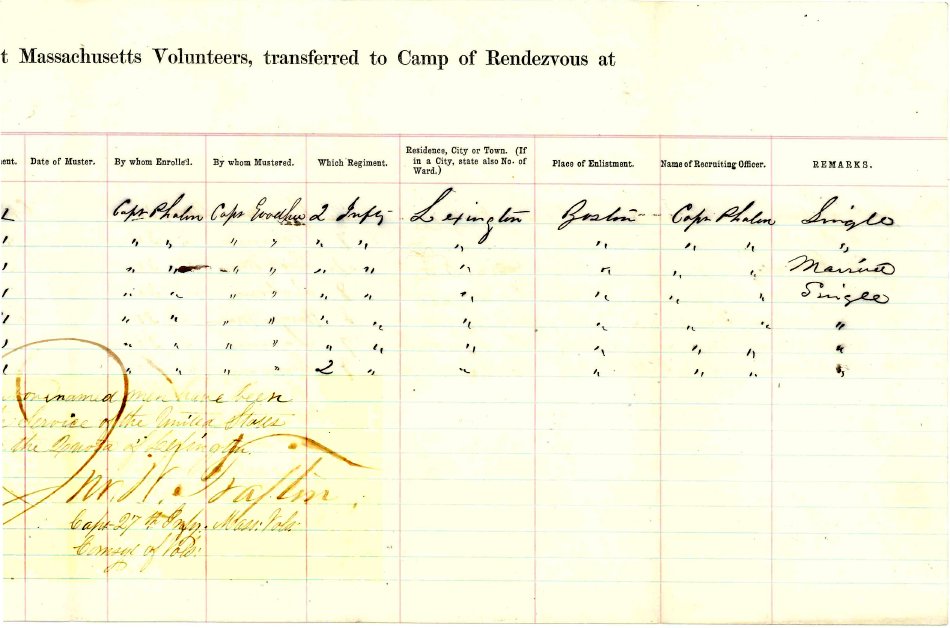 t Massachusetts Volunteers, transferred to Camp of Rendezvous at
ent. Date of Muster. By whom Enrolle'd. By whom Mustered. Which Regiment. Residence, City or Town. (If in a City, state also No. of Ward.) Place of Enlistment. Name of Recruiting Officer. REMARKS.
Capt Phalen Capt Goodhue 2 Infty Lexington Boston Capt Phalen Single
" " " " " " " " " " "
" " " " " " " " " " Married
" " " " " " " " " " Single
" " " " " " " " " " "
" " " " " " " " " " "
" " " " 2 " " " " " "
named men have been
Service of the United States
the Quota of Lexington.
Capt 27th Infy. Mass: Vols: